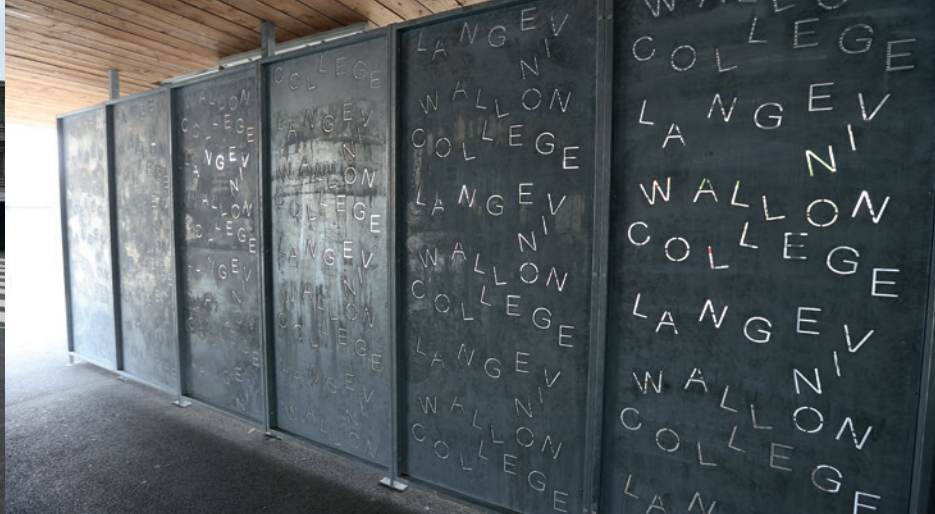 WALLON
COLLEGE
LANGEVIN
WALLON
COLLEGE
LANGEVIN
COLLEGE
LANGEVIN
WALLON
COLLEGE
LANGEVIN
WALLON
COLLEGE
LANGEVIN
WALLON
LANGEVIN
WALLON
COLLEGE
LANGEVIN
WALLON
COLLEGE
LANGEVIN
WALLON
COLLEGE
COLLEGE
LANGEVIN
WALLON
COLLEGE
LANGEVIN
WALLON
COLLEGE
LAN